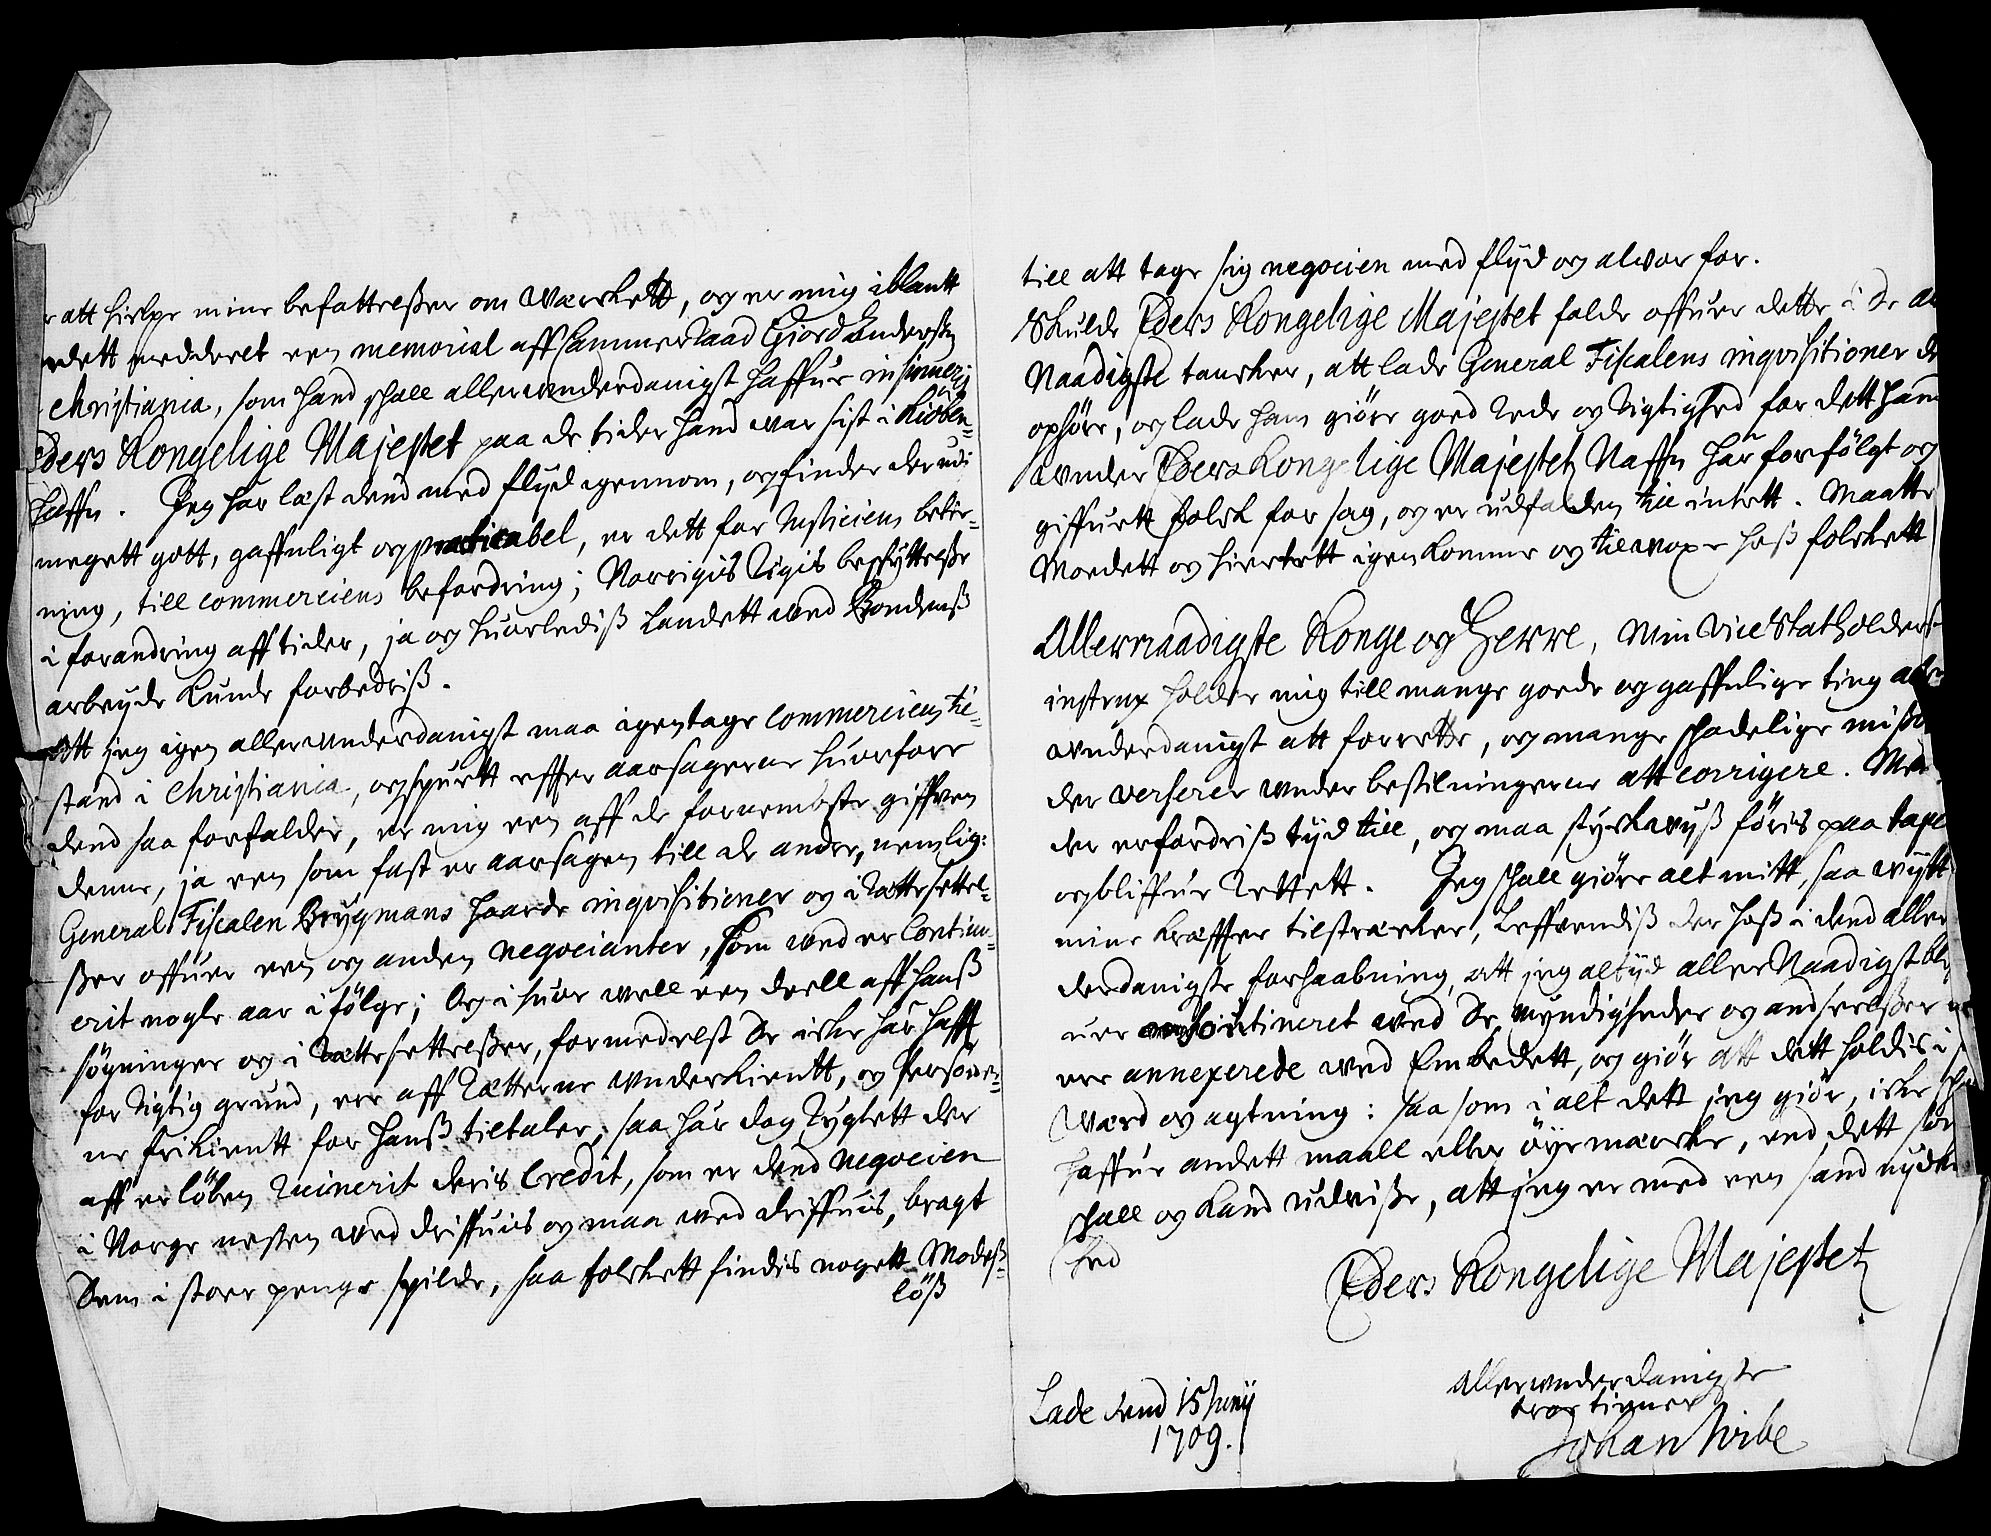 att hielpe mine befattelßer om Værckett, og er mig iblantt
dett meddeelt een memorial aff Cammerraad Giord Andersen
Christiania, som hand shall allerunderdanigst haffue insinuerit
Eders Kongelige Majestet paa de tider hand var sist i Kiöben-
haffn. Jeg har læst dend med flijd igennom, og finder der udi
megett gott, gaffnligt og practicabel, er dett for Justiciens betie-
ning, till commerciens befordring; Norrigis Rigis beskyttelße
i forandring aff tider, ja og huorlediß Landett ved Bondenß
arbeyde kunde forbedriß.
Att jeg igen allerunderdanigst maa igentage commerciens til-
stand i Christiania, og spurtt effter aarsagerne huorfore
dend saa forfalder, er mig een aff de fornembste giffven
denne, ja een som fast er aarsagen till de andre, nemlig:
General Fiscalen Brygmans haarde inqvisitioner og i Rættesettel-
ßer offuer een og anden negocianter, som ved er Continu-
erit nogle aar i fölge; Og i huor vell een deell aff hanß
sögninger og i Rættesettelßer, formedelst de icke har hafft
for Rigtig grund, ere aff Rætterne underkientt, og Personer-
ne frikientt for hanß tiltaler, saa har dog Rygtett der
aff er löben Ruinerit deris Credit, som er dend negocien
i Norge nesten ved driffuis og maa ved driffuis, bragt
Dem i stoer penge spilde, saa folckett findis nogett Modeß-
löß
till att tage sig negocien med flijd og alvor for.
Skulde Eders Kongelige Majestet falde offuer dette i de al
Naadigste tancker, att lade General Fiscalens inqvisitioner de
ophöre, og lade ham giöre goed Rede og Rigtighed for dett hand
under Eders Kongelige Majestetz Naffn har forfölgt og
giffuett folck for sag, og er udfalden till intett. Maatte
Moedett og hiertett igenkomme og tilvoxe hoß folckett
Allernaadigste Konge og Herre, Min Vice Statholders
instrux holder mig till mange goede og gaffnlige ting aller
underdanigst att forrette, og mange skadelige mißb
der verserer under bestilningerne att corrigere. Men
der erfordriß tijd till, og maa styckevyß föris paa tape
og bliffue Rettett. Jeg shall giöre alt mitt, saa vijtt
mine kræffter tilstræcker, Leffvendiß der hoß i dend aller
derdanigste forhaabning, att jeg altijd aller Naadigst bli
uer mainctineret ved de myndigheder og andseelßer
ere annexerede ved Embedett, og giör att dett holdis i
Værd og agtning: saa som i alt dett jeg giör, icke sha
haffue andett maall eller öyemærcke, end dett som
shall og kand udviße, att jeg er med een sand nyde
hed
Eders Kongelige Majestetz
Allerunderdanigste
troe tienner
Johan Vibe
Lade dend 15 Junij
1709.